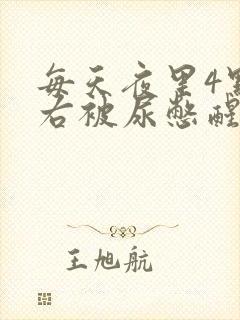 每天夜里4點
右被尿憋醒
王旭航